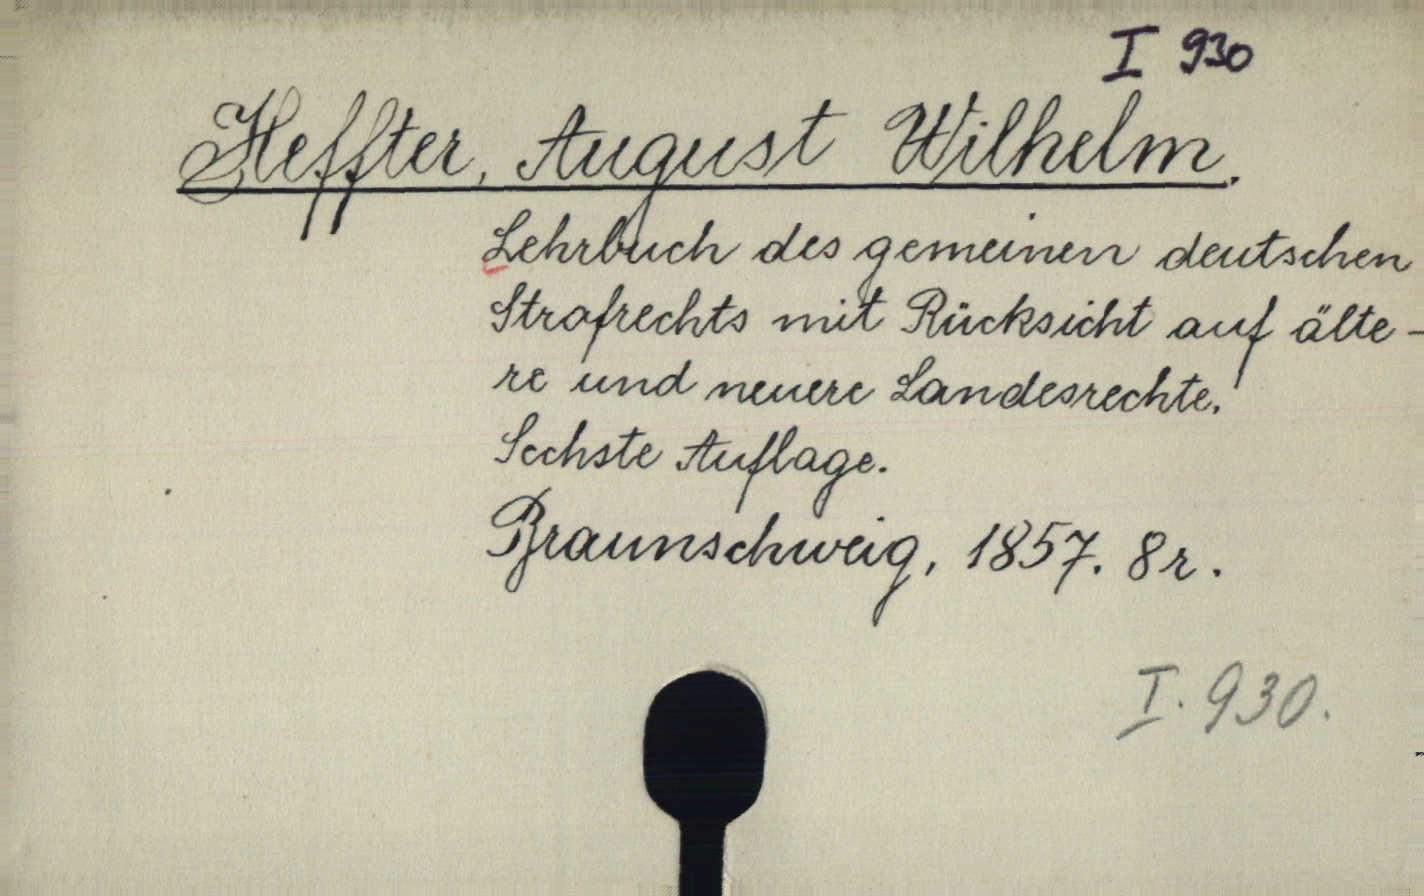 I 930
Heffter, August Wilhelm.
Lehrbuch des gemeinen deutschen
Strafrechts mit Rücksicht auf älte-
re und neuere Landesrechte.
Sechste Auflage.
Braunschweig, 1857. 8r.
I. 930.